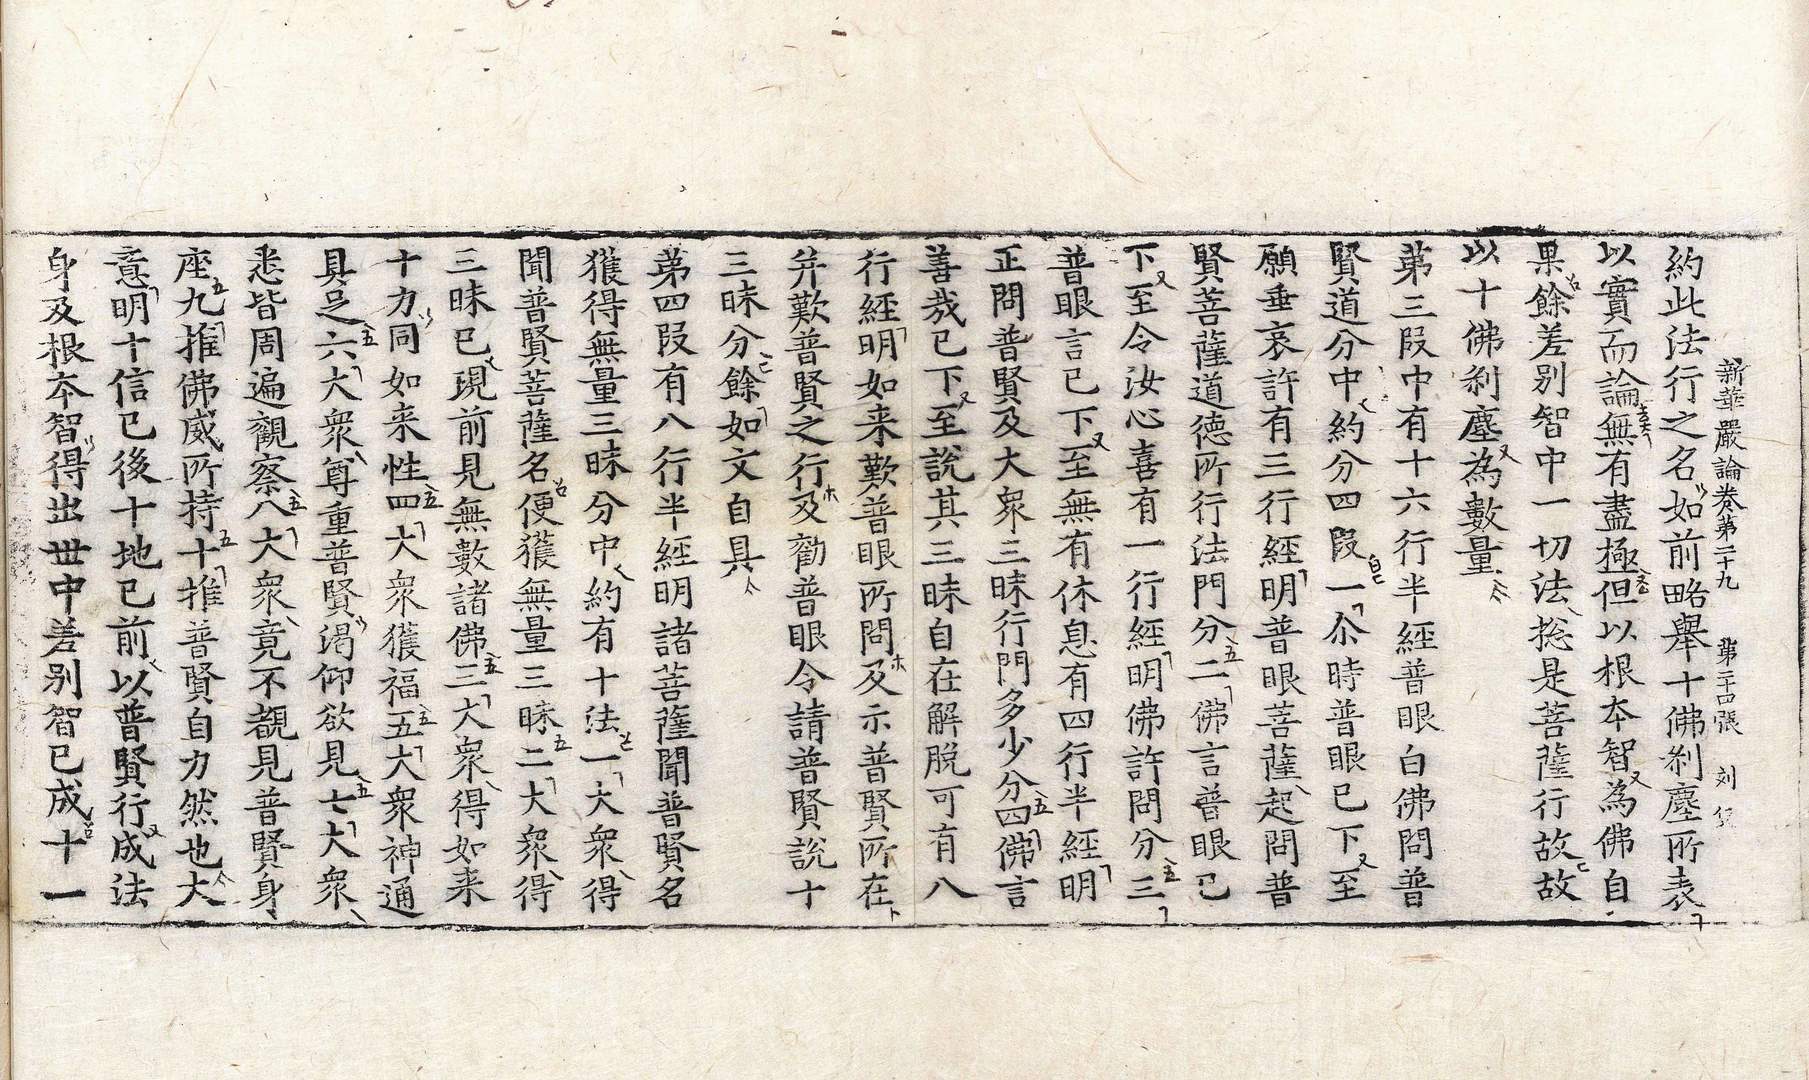 新華嚴論卷第二十九 第二十四張
約此法行之名如前略舉十佛刹塵所表
以實而論無有盡極但以根本智為佛自
果餘差别智中一切法揔是菩薩行故故
以十佛刹塵為數量
苐三叚中有十六行半經普眼白佛問普
賢道分中約分四叚一尒時普眼已下至
願垂哀許有三行經明普眼菩薩起問普
賢菩薩道德所行法門分二佛言普眼已
下至令汝心喜有一行經明佛許問分三
普眼言已下至無有休息有四行半經明
正問普賢及大衆三昧行門多少分四佛言
善哉已下至說其三昧自在解脫可有八
行經明如来歎普眼所問及示普賢所在
并歎普賢之行及勸普眼令請普賢說十
三昧分餘如文自具
苐四叚有八行半經明諸菩薩聞普賢名
獲得無量三昧分中約有十法一大衆得
聞普賢菩薩名便獲無量三昧二大衆得
三昧已現前見無數諸佛三大衆得如来
十力同如来性四大衆獲福五大衆神通
具足六大衆尊重普賢渴仰欲見七大衆
悉皆周遍觀察八大衆竟不覩見普賢身
座九推佛威所持十推普賢自力然也大
意明十信已後十地已前以普賢行成法
身及根本智得出世中差别智已成十一